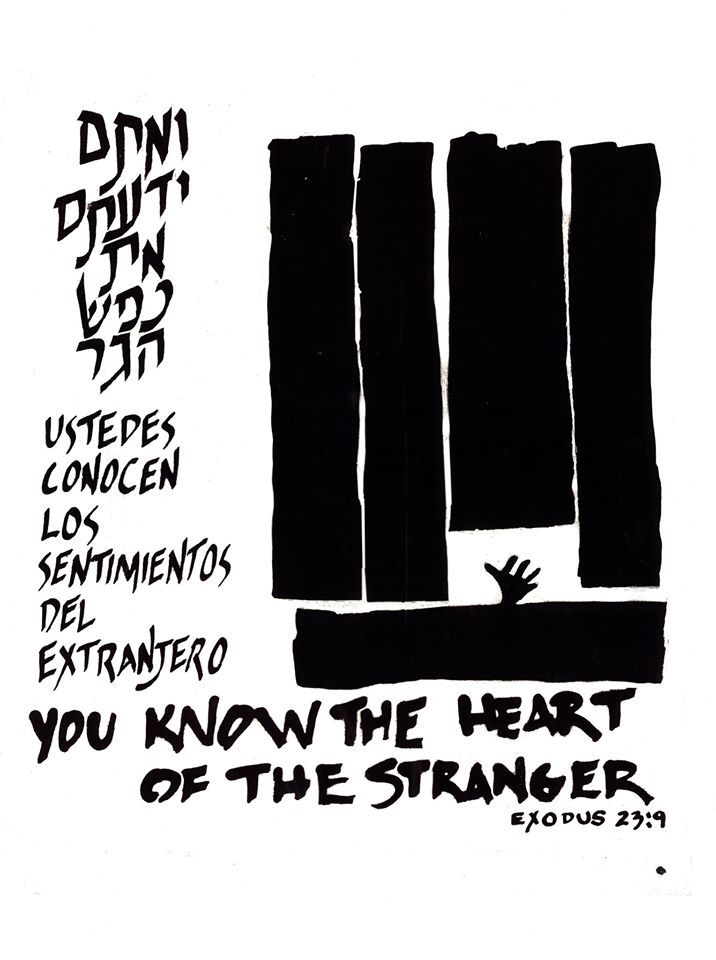 ואתם
ידעתם
את
נפש
הגר
USTEDES
CONOCEN
LOS
SENTIMIENTOS
DEL
EXTRANJERO
YOU KNOW THE HEART
OF THE STRANGER
EXODUS 23:9